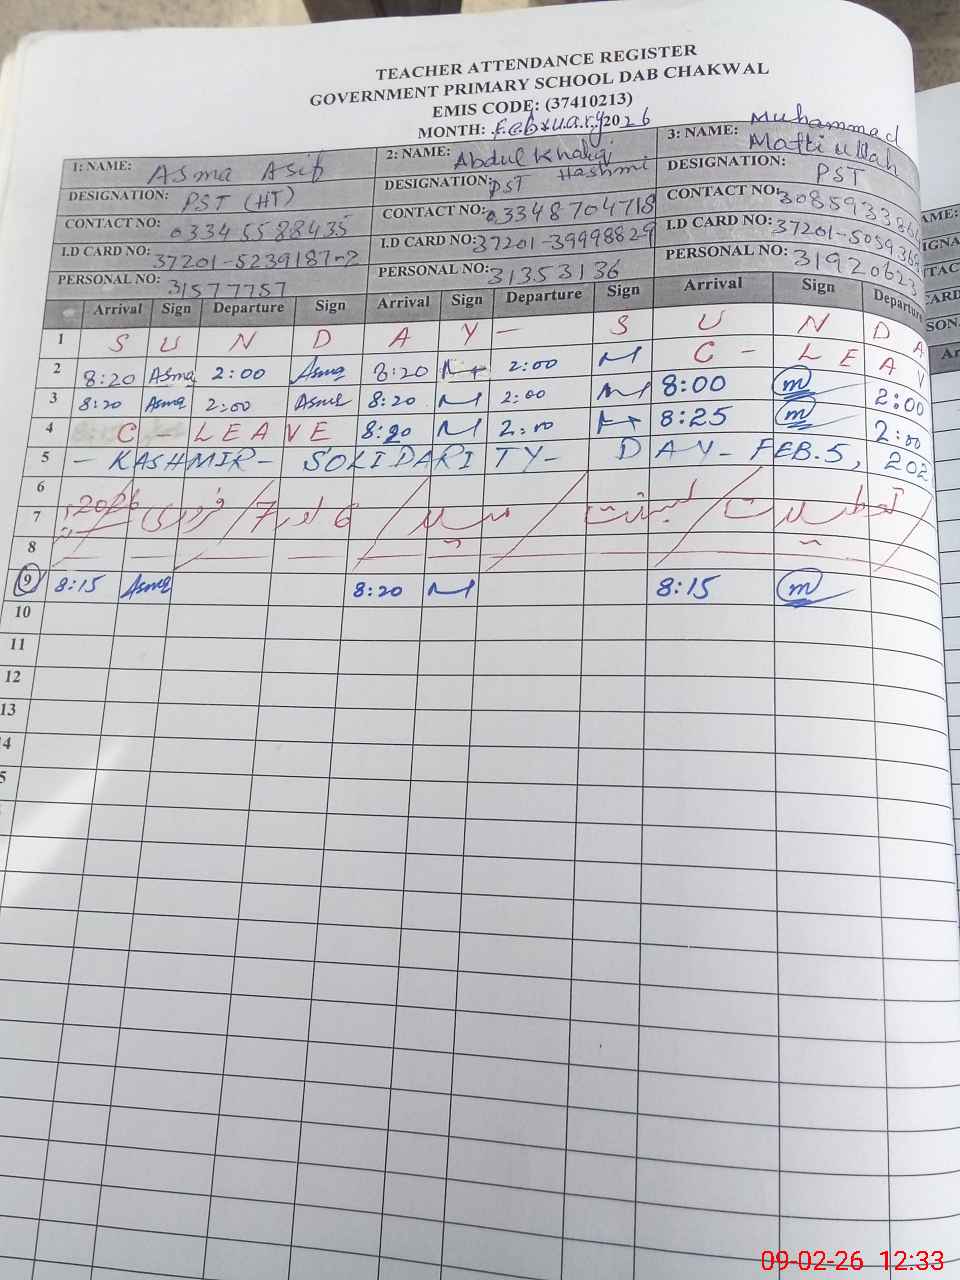 TEACHER ATTENDANCE REGISTER
GOVERNMENT PRIMARY SCHOOL DAB CHAKWAL
EMIS CODE: (37410213)
MONTH: February 2026
1: NAME: Asma Asif 2: NAME: Abdul Khaliq Hashmi 3: NAME: Muhammad
DESIGNATION: PST (HT) DESIGNATION: PST DESIGNATION: PST
CONTACT NO: 03345588435 CONTACT NO: 03348704718 CONTACT NO:
I.D CARD NO: 37201-5239187-2 I.D CARD NO: 37201-3999882 I.D CARD NO: 37201-505936
PERSONAL NO: 31577757 PERSONAL NO: 31353136 PERSONAL NO: 31920623
Arrival Sign Departure Sign Arrival Sign Departure Sign Arrival Sign Departure
1 S U N D A Y - S U N D A
2 8:20 Asma 2:00 Asma 8:20 2:00 C - L E A V
3 8:20 Asma 2:00 Asma 8:20 2:00 8:00 m 2:00
4 C - L E A V E 8:20 2:00 8:25 m 2:00
5 - KASHMIR - SOLIDARITY - DAY - FEB. 5, 202
6
7 6 اور 7 فروری 2026
8
9 8:15 Asma 8:20 8:15 m
10
11
12
13
4
5
AME:
IGNA
TAC
CARD
SON
Ar
09-02-26 12:33